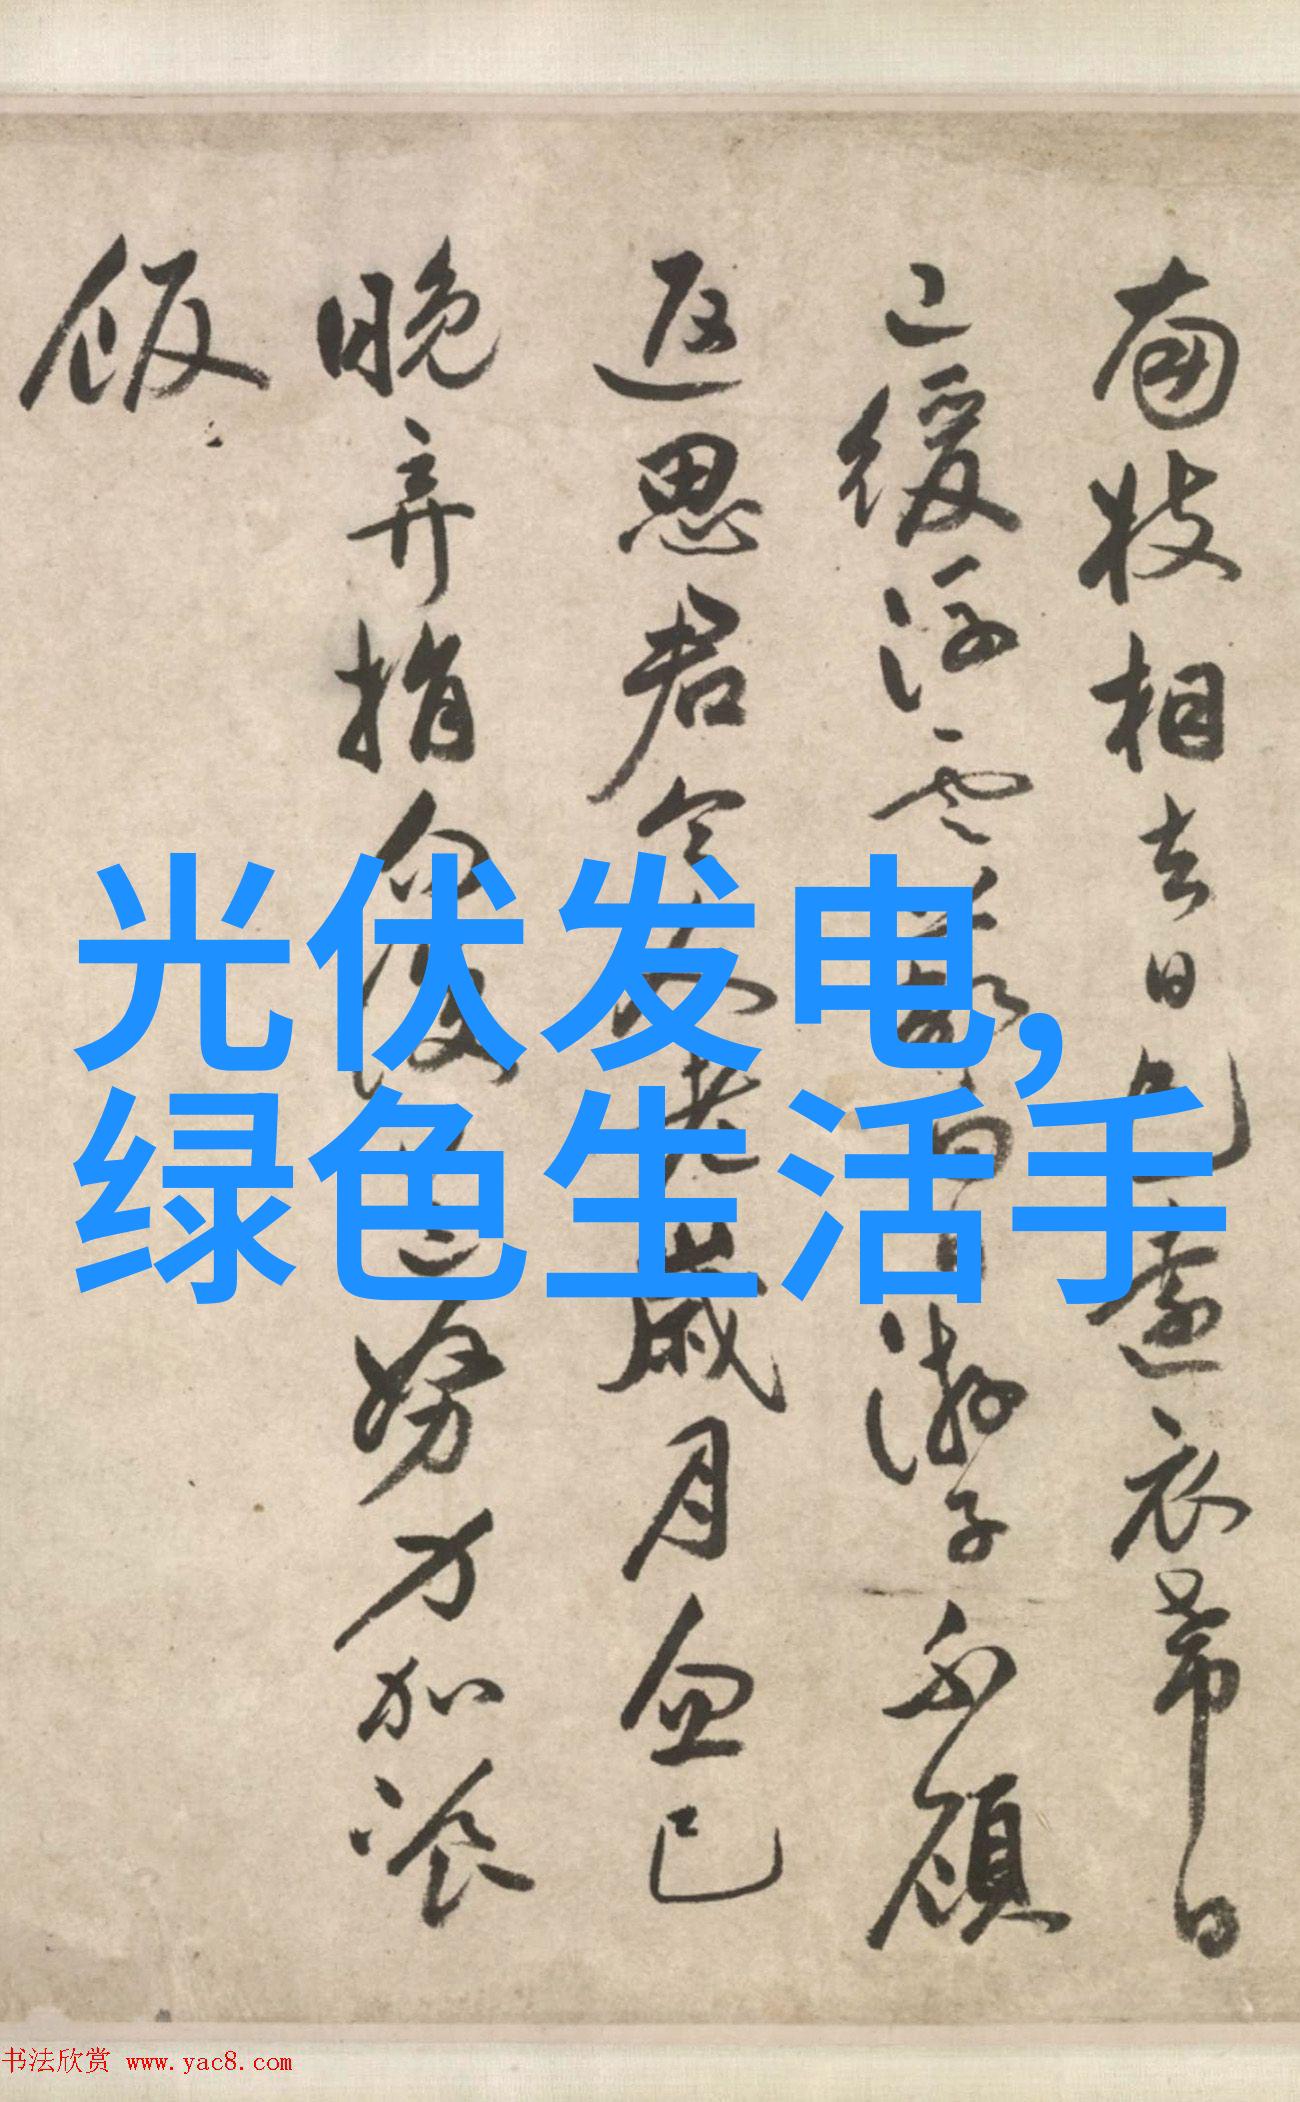 南枝相去日已遠衣帶日
已緩浮雲蔽白日游子不顧
返思君令人老歲月忽已
晚弃捐勿復道努力加飡
飯
光伏发电,
绿色生活手
书法欣赏 www.yac8.com